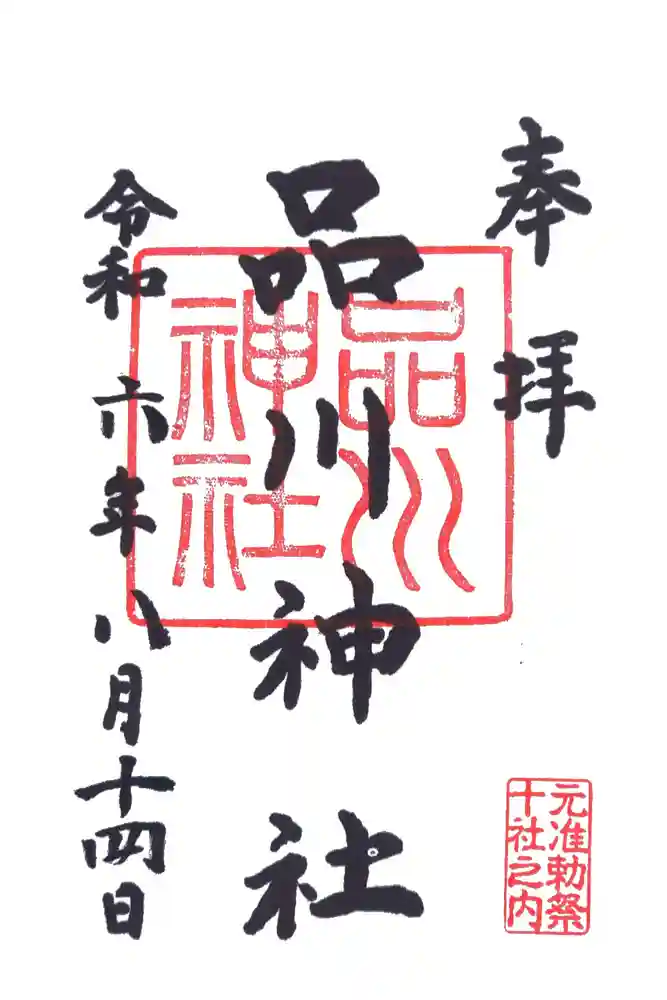 奉拝
元准勅祭
十社之内
品川神社
品川
神社
令和六年八月十四日